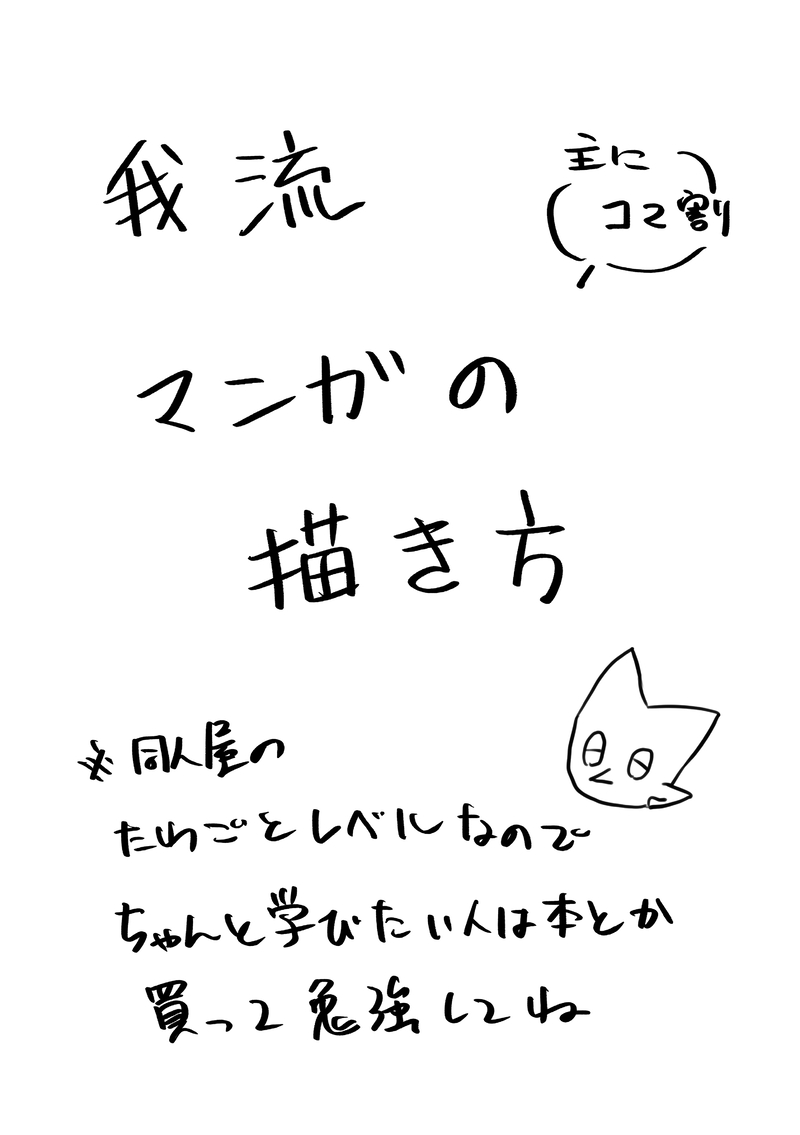 我流
マンガの
描き方
主に
コマ割り
※同人屋の
たわごとレベルなので
ちゃんと学びたい人は本とか
買って勉強してね